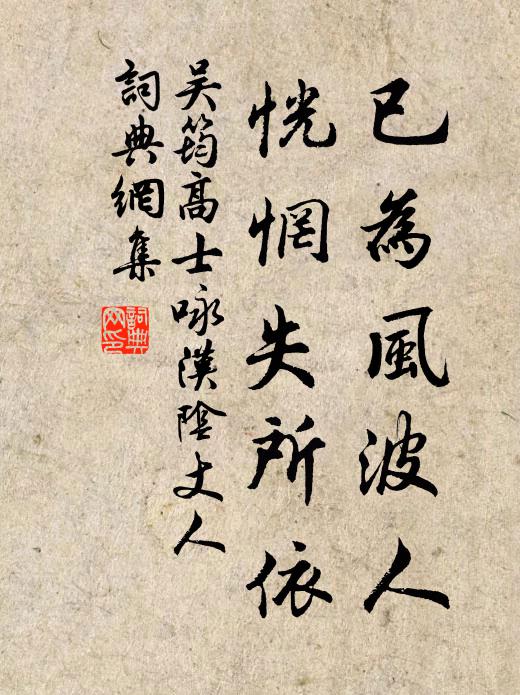 已為風波人
恍惘失所依
吴筠高士咏漢陰丈人
詞典網集
詞典網印